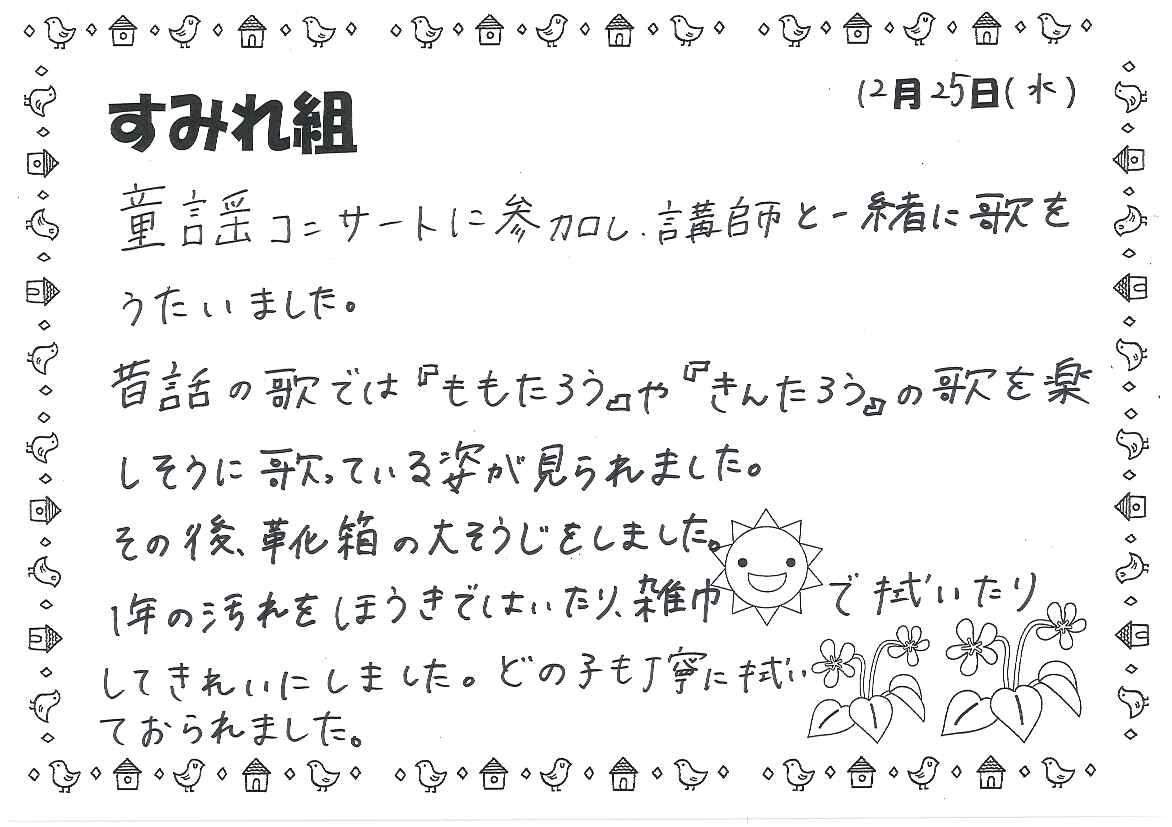 すみれ組
12月25日(水)
童謡コンサートに参加し、講師と一緒に歌を
うたいました。
昔話の歌では『ももたろう』や『きんたろう』の歌を楽
しそうに歌っている姿が見られました。
その後、靴箱の大そうじをしました。
1年の汚れをほうきではいたり、雑巾で拭いたり
してきれいにしました。どの子も丁寧に拭い
ておられました。